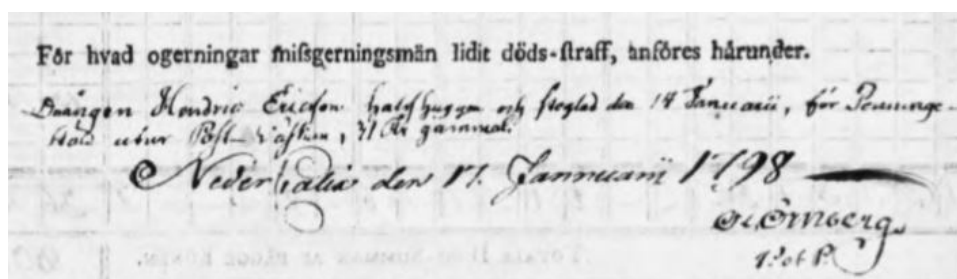 För hvad ogerningar miſsgerningsmän lidit döds-ſtraff, anföres härunder.
Drängen Hendric Ericſon halſhuggen och ſteglad den 14 Januarii, för Penninge
stöld utur Poſt-Väſkan, 31 år gammal.
Neder Calix den 17. Januarii 1798
Ol. Örnberg